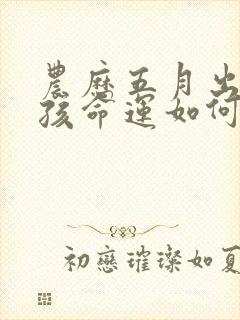 農曆五月出
孩命運如何
初戀璀璨如夏